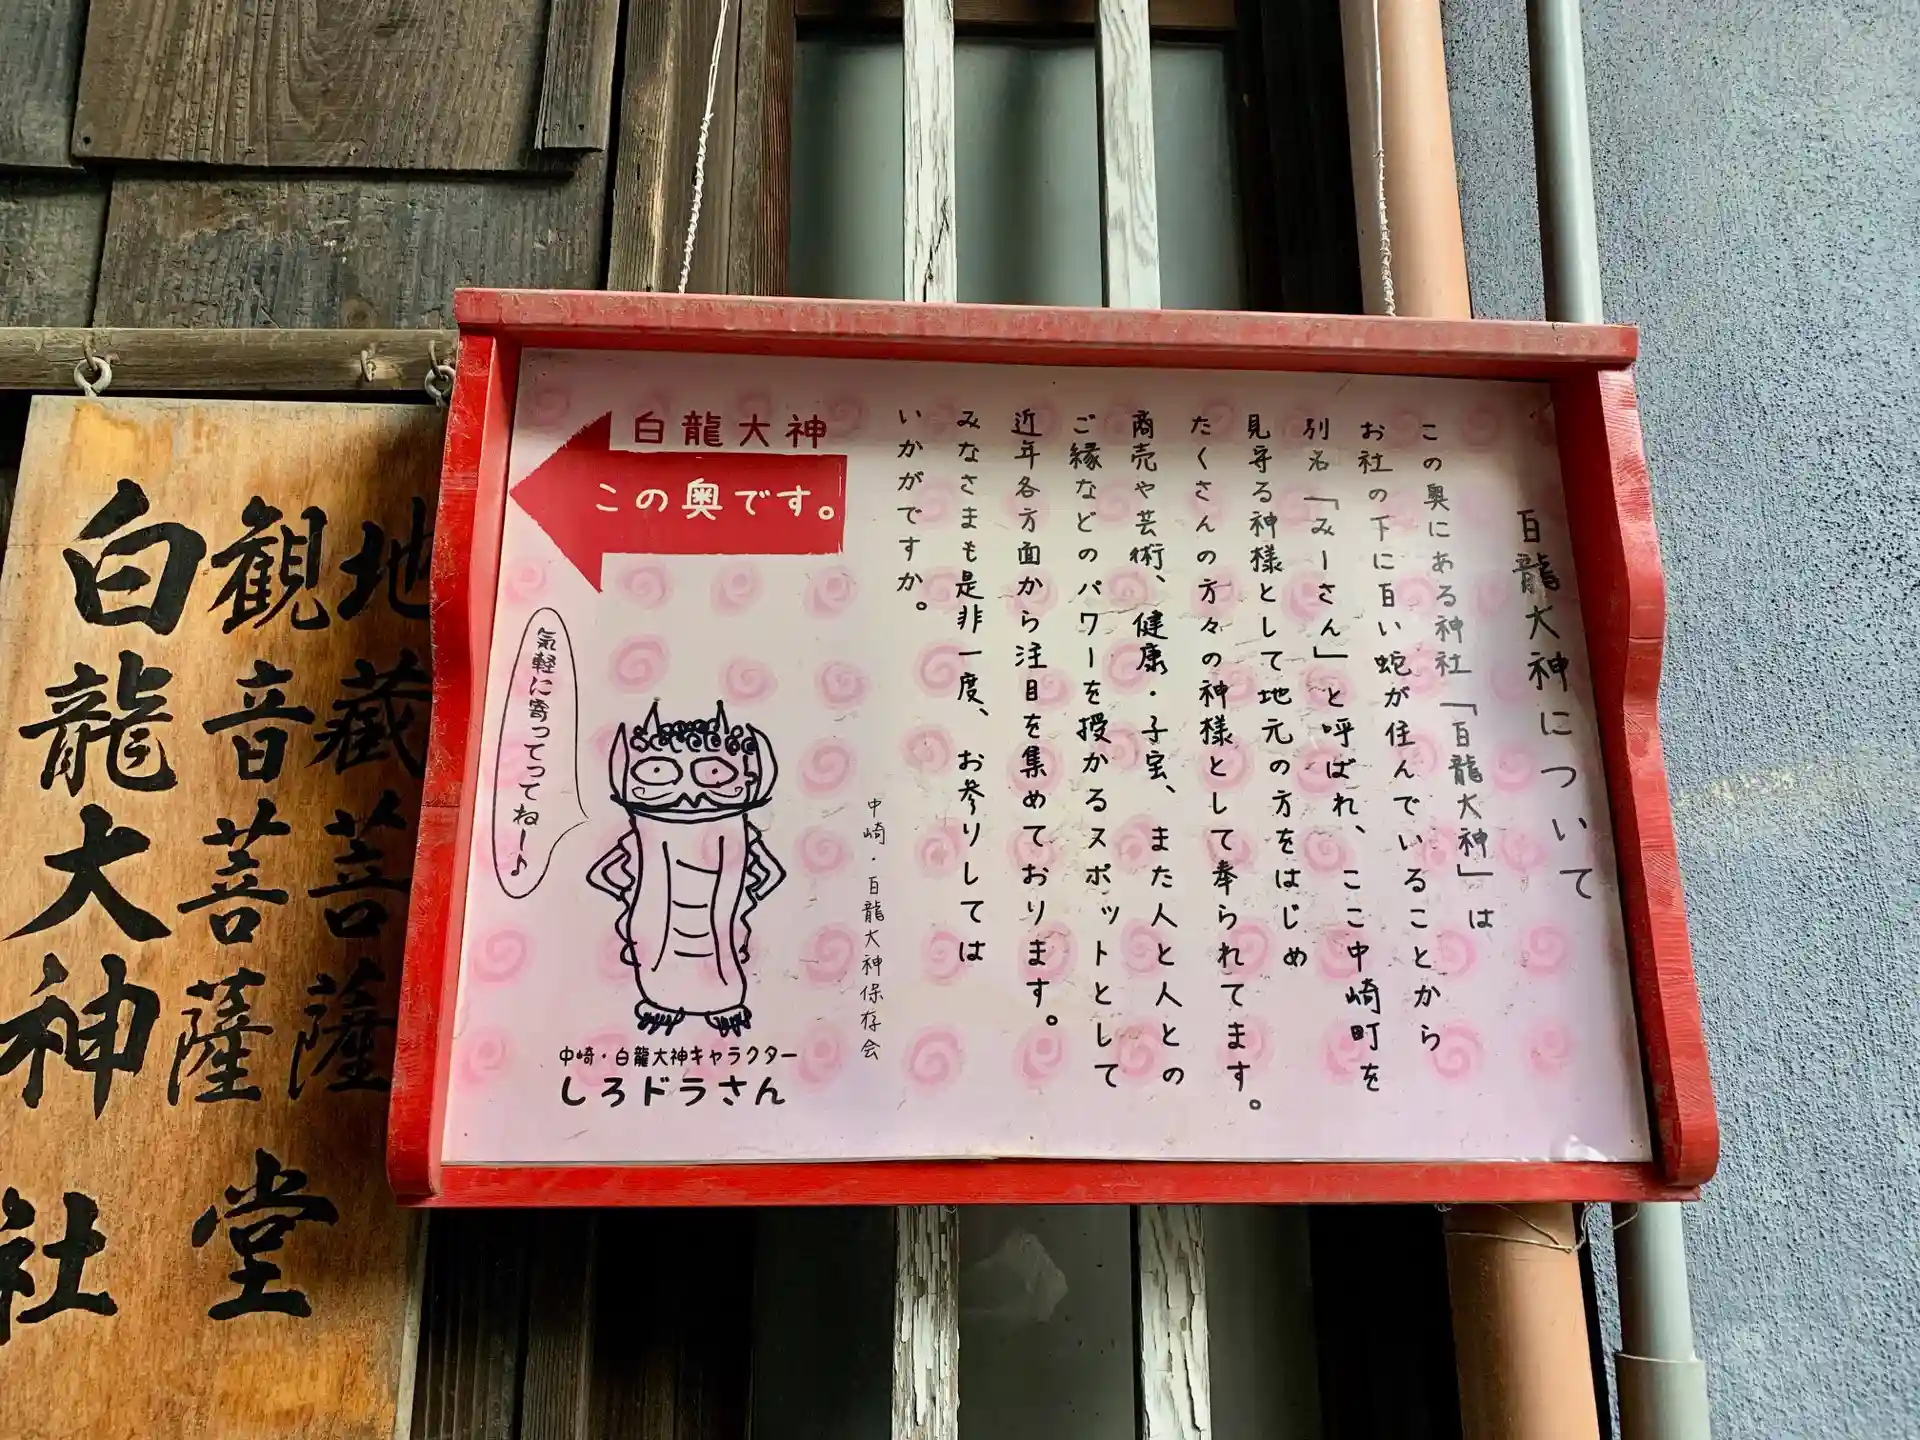 白龍大神について
この奥にある神社「白龍大神」は
お社の下に白い蛇が住んでいることから
別名「みーさん」と呼ばれ、ここ中崎町を
見守る神様として地元の方をはじめ
たくさんの方々の神様として奉られてます。
商売や芸術、健康・子宝、また人と人との
ご縁などのパワーを授かるスポットとして
近年各方面から注目を集めております。
みなさまも是非一度、お参りしては
いかがですか。
中崎・白龍大神保存会
白龍大神
この奥です。
気軽に寄ってってねー♪
中崎・白龍大神キャラクター
しろドラさん
地藏菩薩
観音菩薩堂
白龍大神社